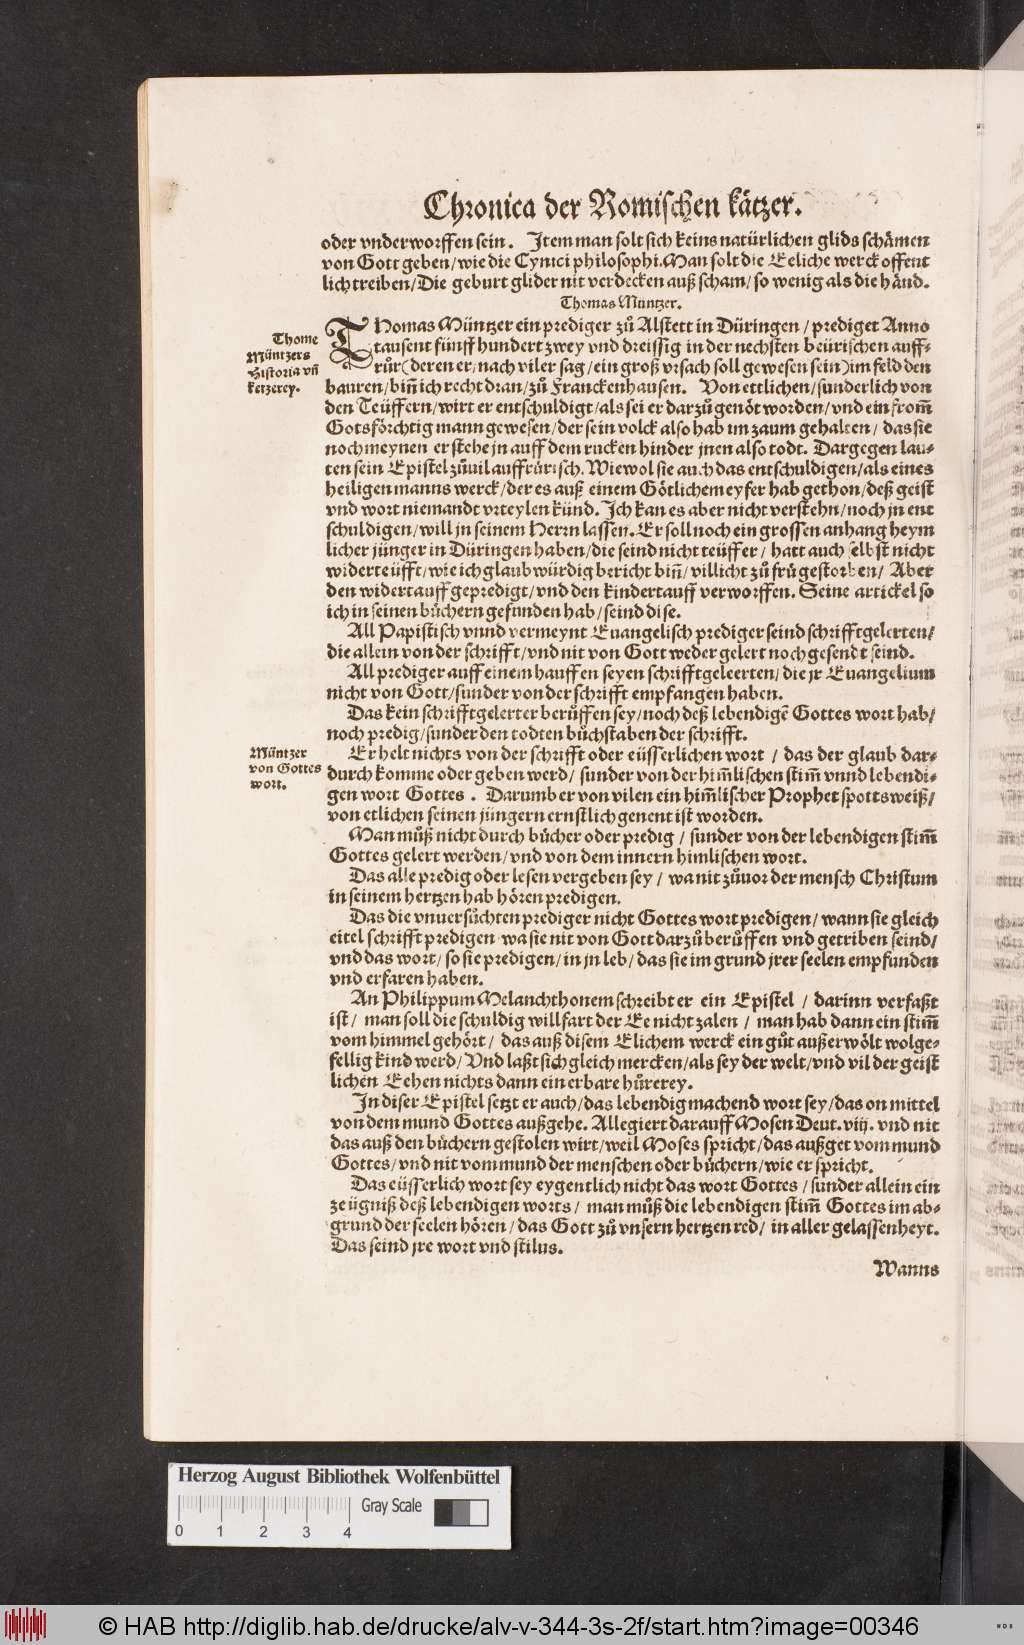 Chronica der Romischen kätzer.
oder vnderworffen sein. Item man solt sich keins natürlichen glids schämen
von Gott geben/ wie die Cynici philosophi. Man solt die Eeliche werck offent
lich treiben/ Die geburt glider nit verdecken auß scham/ so wenig als die händ.
Thomas Müntzer.
Thome
Müntzers
Historia vñ
ketzerey.
THomas Müntzer ein prediger zů Alstett in Düringen/ prediget Anno
tausent fünff hundert zwey vnd dreissig in der nechsten beürischen auff-
růr (deren er/ nach viler sag/ ein groß vrsach soll gewesen sein) im feld den
bauren/ biñ ich recht dran/ zů Franckenhausen. Von ettlichen/ sunderlich von
den Teüffern/ wirt er entschuldigt/ als sei er darzů genöt worden/ vnd ein from̃
Gotsförchtig mann gewesen/ der sein volck also hab im zaum gehalten/ das sie
noch meynen er stehe jn auff dem rucken hinder jnen also todt. Dargegen lau-
ten sein Epistel zůuil auffrůrisch. Wiewol sie auch das entschuldigen/ als eines
heiligen manns werck/ der es auß einem Götlichem eyfer hab gethon/ deß geist
vnd wort niemandt vrteylen künd. Ich kan es aber nicht verstehn/ noch jn ent
schuldigen/ will jn seinem Herrn lassen. Er soll noch ein grossen anhang heym
licher jünger in Düringen haben/ die seind nicht teüffer/ hatt auch selbst nicht
widerteüfft/ wie ich glaubwürdig bericht biñ/ villicht zů frü gestorben/ Aber
den widertauff gepredigt/ vnd den kindertauff verworffen. Seine artickel so
ich in seinen bůchern gefunden hab/ seind dise.
All Papistisch vnnd vermeynt Euangelisch prediger seind schrifftgelerten/
die allein von der schrifft/ vnd nit von Gott weder gelert noch gesendt seind.
All prediger auff einem hauffen seyen schrifftgeleerten/ die jr Euangelium
nicht von Gott/ sunder von der schrifft empfangen haben.
Das kein schrifftgelerter berůffen sey/ noch deß lebendigẽ Gottes wort hab/
noch predig/ sunder den todten bůchstaben der schrifft.
Müntzer
von Gottes
wort.
Er helt nichts von der schrifft oder eüsserlichen wort/ das der glaub dar-
durch komme oder geben werd/ sunder von der him̃lischen stim̃ vnnd lebendi-
gen wort Gottes. Darumb er von vilen ein him̃lischer Prophet spottsweiß/
von etlichen seinen jüngern ernstlich genent ist worden.
Man můß nicht durch bůcher oder predig/ sunder von der lebendigen stim̃
Gottes gelert werden/ vnd von dem innern himlischen wort.
Das alle predig oder lesen vergeben sey/ wa nit zůuor der mensch Christum
in seinem hertzen hab hören predigen.
Das die vnuersůchten prediger nicht Gottes wort predigen/ wann sie gleich
eitel schrifft predigen wa sie nit von Gott darzů berůffen vnd getriben seind/
vnd das wort/ so sie predigen/ in jn leb/ das sie im grund jrer seelen empfunden
vnd erfaren haben.
An Philippum Melanchthonem schreibt er ein Epistel/ darinn verfaßt
ist/ man soll die schuldig willfart der Ee nicht zalen/ man hab dann ein stim̃
vom himmel gehört/ das auß disem Elichem werck ein gůt außerwölt wolge-
fellig kind werd/ Vnd laßt sich gleich mercken/ als sey der welt/ vnd vil der geist
lichen Eehen nichts dann ein erbare hůrerey.
In diser Epistel setzt er auch/ das lebendigmachend wort sey/ das on mittel
von dem mund Gottes außgehe. Allegiert darauff Mosen Deut. viij. vnd nit
das auß den bůchern gestolen wirt/ weil Moses spricht/ das außget vom mund
Gottes/ vnd nit vom mund der menschen oder bůchern/ wie er spricht.
Das eüsserlich wort sey eygentlich nicht das wort Gottes/ sunder allein ein
zeügniß deß lebendigen worts/ man můß die lebendigen stim̃ Gottes im ab-
grund der seelen hören/ das Gott zů vnsern hertzen red/ in aller gelassenheyt.
Das seind jre wort vnd stilus.
Wanns
Herzog August Bibliothek Wolfenbüttel
Gray Scale
0 1 2 3 4
© HAB http://diglib.hab.de/drucke/alv-v-344-3s-2f/start.htm?image=00346